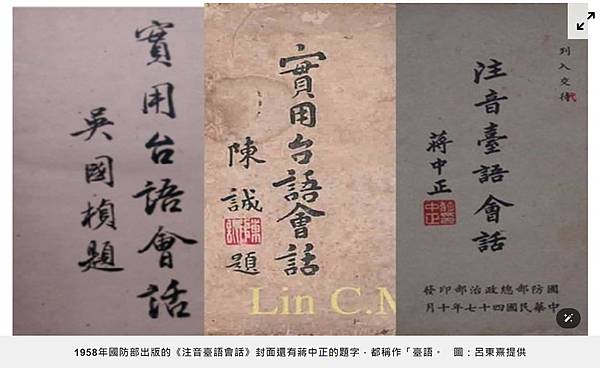 實用台語會話
吳國楨題
實用台語會話
陳誠題
Lin C.M
列入交待
代
注音臺語會話
蔣中正
國防部總政治部印發
中華民國四十七年十月
1958年國防部出版的《注音臺語會話》封面還有蔣中正的題字，都稱作「臺語。 圖：呂東熹提供